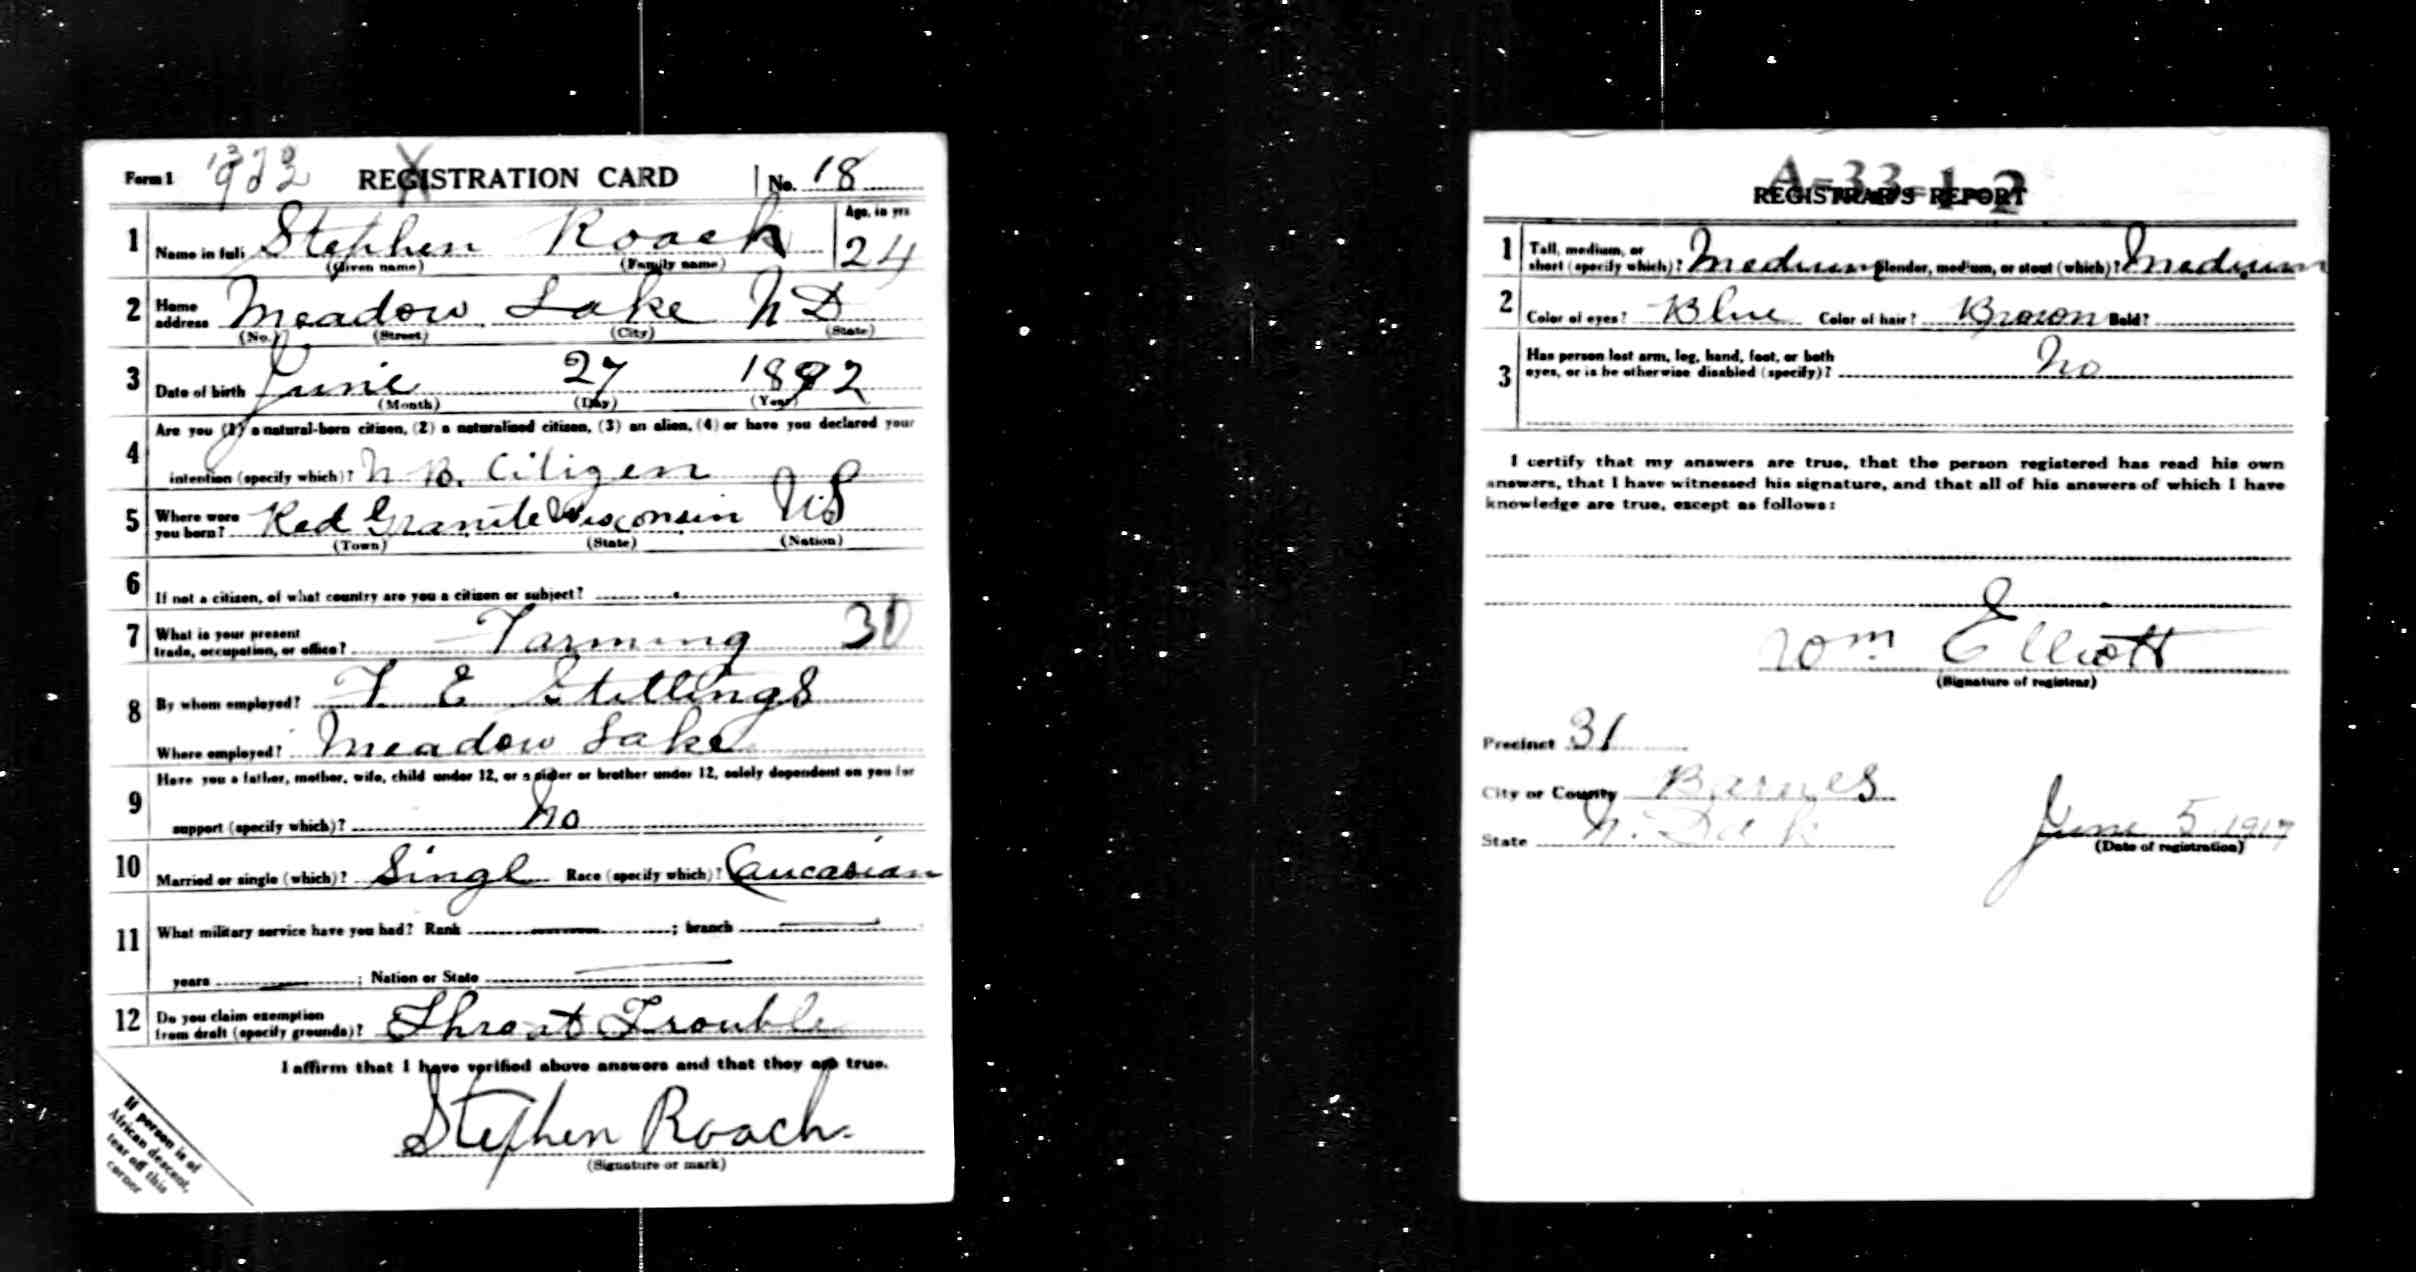 Form 1 REGISTRATION CARD No. 18
1 Name in full Stephen Roach Age, in yrs 24
(Given name) (Family name)
2 Home address Meadow Lake N D
(No.) (Street) (City) (State)
3 Date of birth June 27 1892
(Month) (Day) (Year)
4 Are you (1) a natural-born citizen, (2) a naturalized citizen, (3) an alien, (4) or have you declared your
intention (specify which)? N. B. Citizen
5 Where were you born? Red Granite Wisconsin US
(Town) (State) (Nation)
6 If not a citizen, of what country are you a citizen or subject?
7 What is your present trade, occupation, or office? Farming 30
8 By whom employed? F E Stillings
Where employed? Meadow Lake
9 Have you a father, mother, wife, child under 12, or a sister or brother under 12, solely dependent on you for
support (specify which)? No
10 Married or single (which)? Singl Race (specify which)? Caucasian
11 What military service have you had? Rank ; branch
years ; Nation or State
12 Do you claim exemption from draft (specify grounds)? Throat Trouble
I affirm that I have verified above answers and that they are true.
Stephen Roach.
(Signature or mark)
If person is of
African descent,
tear off this
corner
A-33-1-2
REGISTRAR'S REPORT
1 Tall, medium, or short (specify which)? Medium Slender, medium, or stout (which)? Medium
2 Color of eyes? Blue Color of hair? Brown Bald?
3 Has person lost arm, leg, hand, foot, or both
eyes, or is he otherwise disabled (specify)? No
I certify that my answers are true, that the person registered has read his own
answers, that I have witnessed his signature, and that all of his answers of which I have
knowledge are true, except as follows:
Wm Elliott
(Signature of registrar)
Precinct 31
City or County Barnes
State N. Dak June 5 1917
(Date of registration)